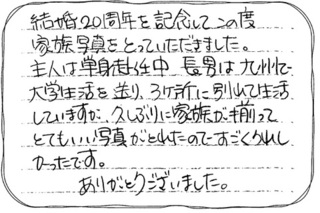 結婚20周年を記念してこの度
家族写真をとっていただきました。
主人は単身赴任中 長男は九州で
大学生活を送り、3ヶ所に別れて生活
していますが、久しぶりに家族が揃って
とてもいい写真がとれたのですごくうれし
かったです。
ありがとうございました。